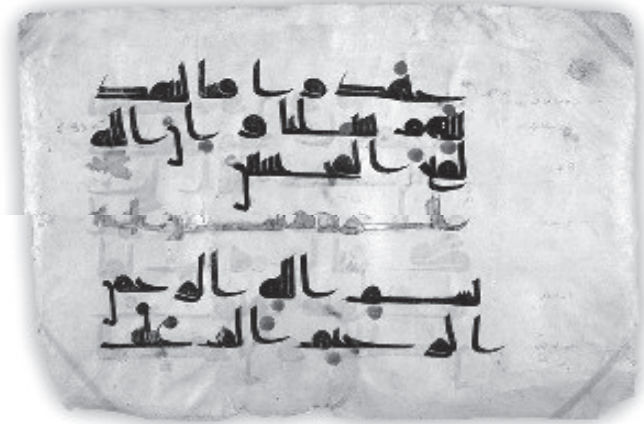 جهدوا فينا لنهد
ينهم سبلنا وان الله
لمع المحسنين
بسم الله الرحمن
الرحيم الم غلبت